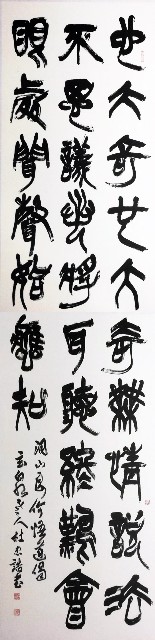 也大奇也大奇無情說法
不思議若將耳聽終難會
眼處聞聲始知
洞山良价悟道偈
杜忠誥書